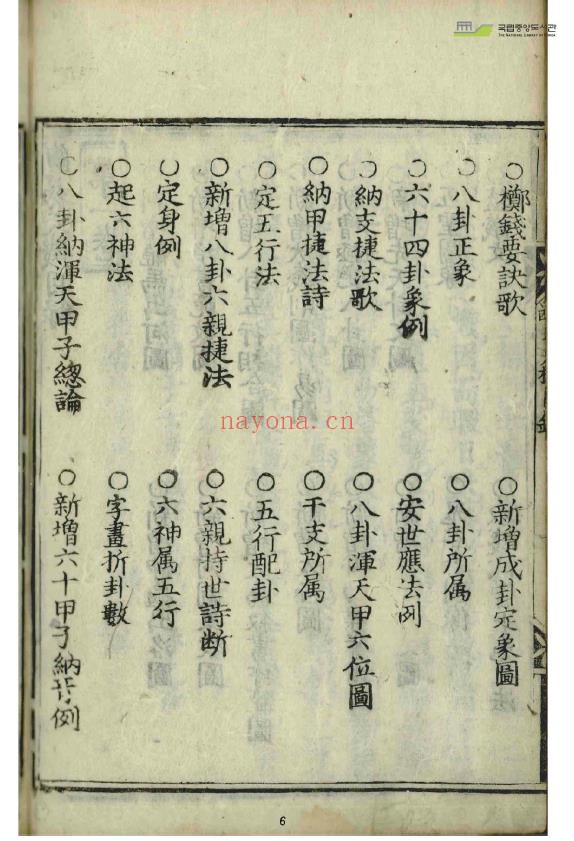 국립중앙도서관
THE NATIONAL LIBRARY OF KOREA
○擲錢要訣歌 ○新增成卦定象圖
○八卦正象 ○八卦所属
○六十四卦象例 ○安世應法例
○納支捷法歌 ○八卦渾天甲六位圖
○納甲捷法詩 ○干支所属
○定五行法 ○五行配卦
○新增八卦六親捷法 ○六親持世詩断
○定身例 ○六神属五行
○起六神法 ○字畫折卦數
○八卦納渾天甲子總論 ○新增六十甲子納音例
nayona.cn
6